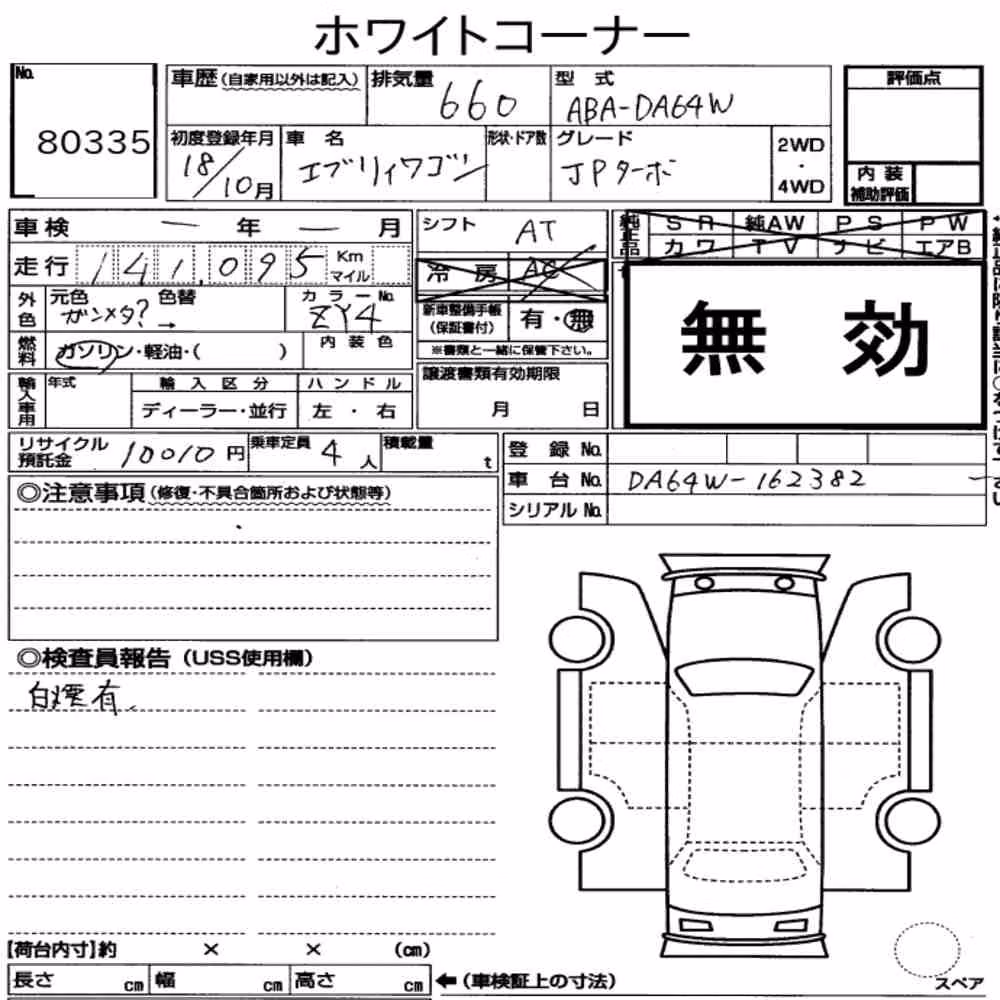 ホワイトコーナー
No.
80335
車歴(自家用以外は記入)
排気量
660
型式
ABA-DA64W
評価点
初度登録年月
18/10月
車名
エブリィワゴン
形状・ドア数
グレード
JPターボ
2WD
・
4WD
内装
補助評価
車検 ー 年 ー 月
シフト AT
純正品
SR 純AW PS PW
カワ TV ナビ エアB
走行 141,095 Km
マイル
冷房 AC
外色
元色 色替
ガンメタ? →
カラーNo.
ZY4
新車整備手帳
(保証書付)
有・無
※書類と一緒に保管下さい。
無効
燃料
ガソリン・軽油・( )
内装色
輸入車用
年式
輸入区分
ディーラー・並行
ハンドル
左・右
譲渡書類有効期限
月 日
リサイクル
預託金
10010円
乗車定員
4人
積載量
t
登録No.
車台No. DA64W-162382
シリアルNo.
◎注意事項(修復・不具合箇所および状態等)
◎検査員報告(USS使用欄)
白煙有
【荷台内寸】約 × × (cm)
長さ cm 幅 cm 高さ cm
←(車検証上の寸法)
スペア